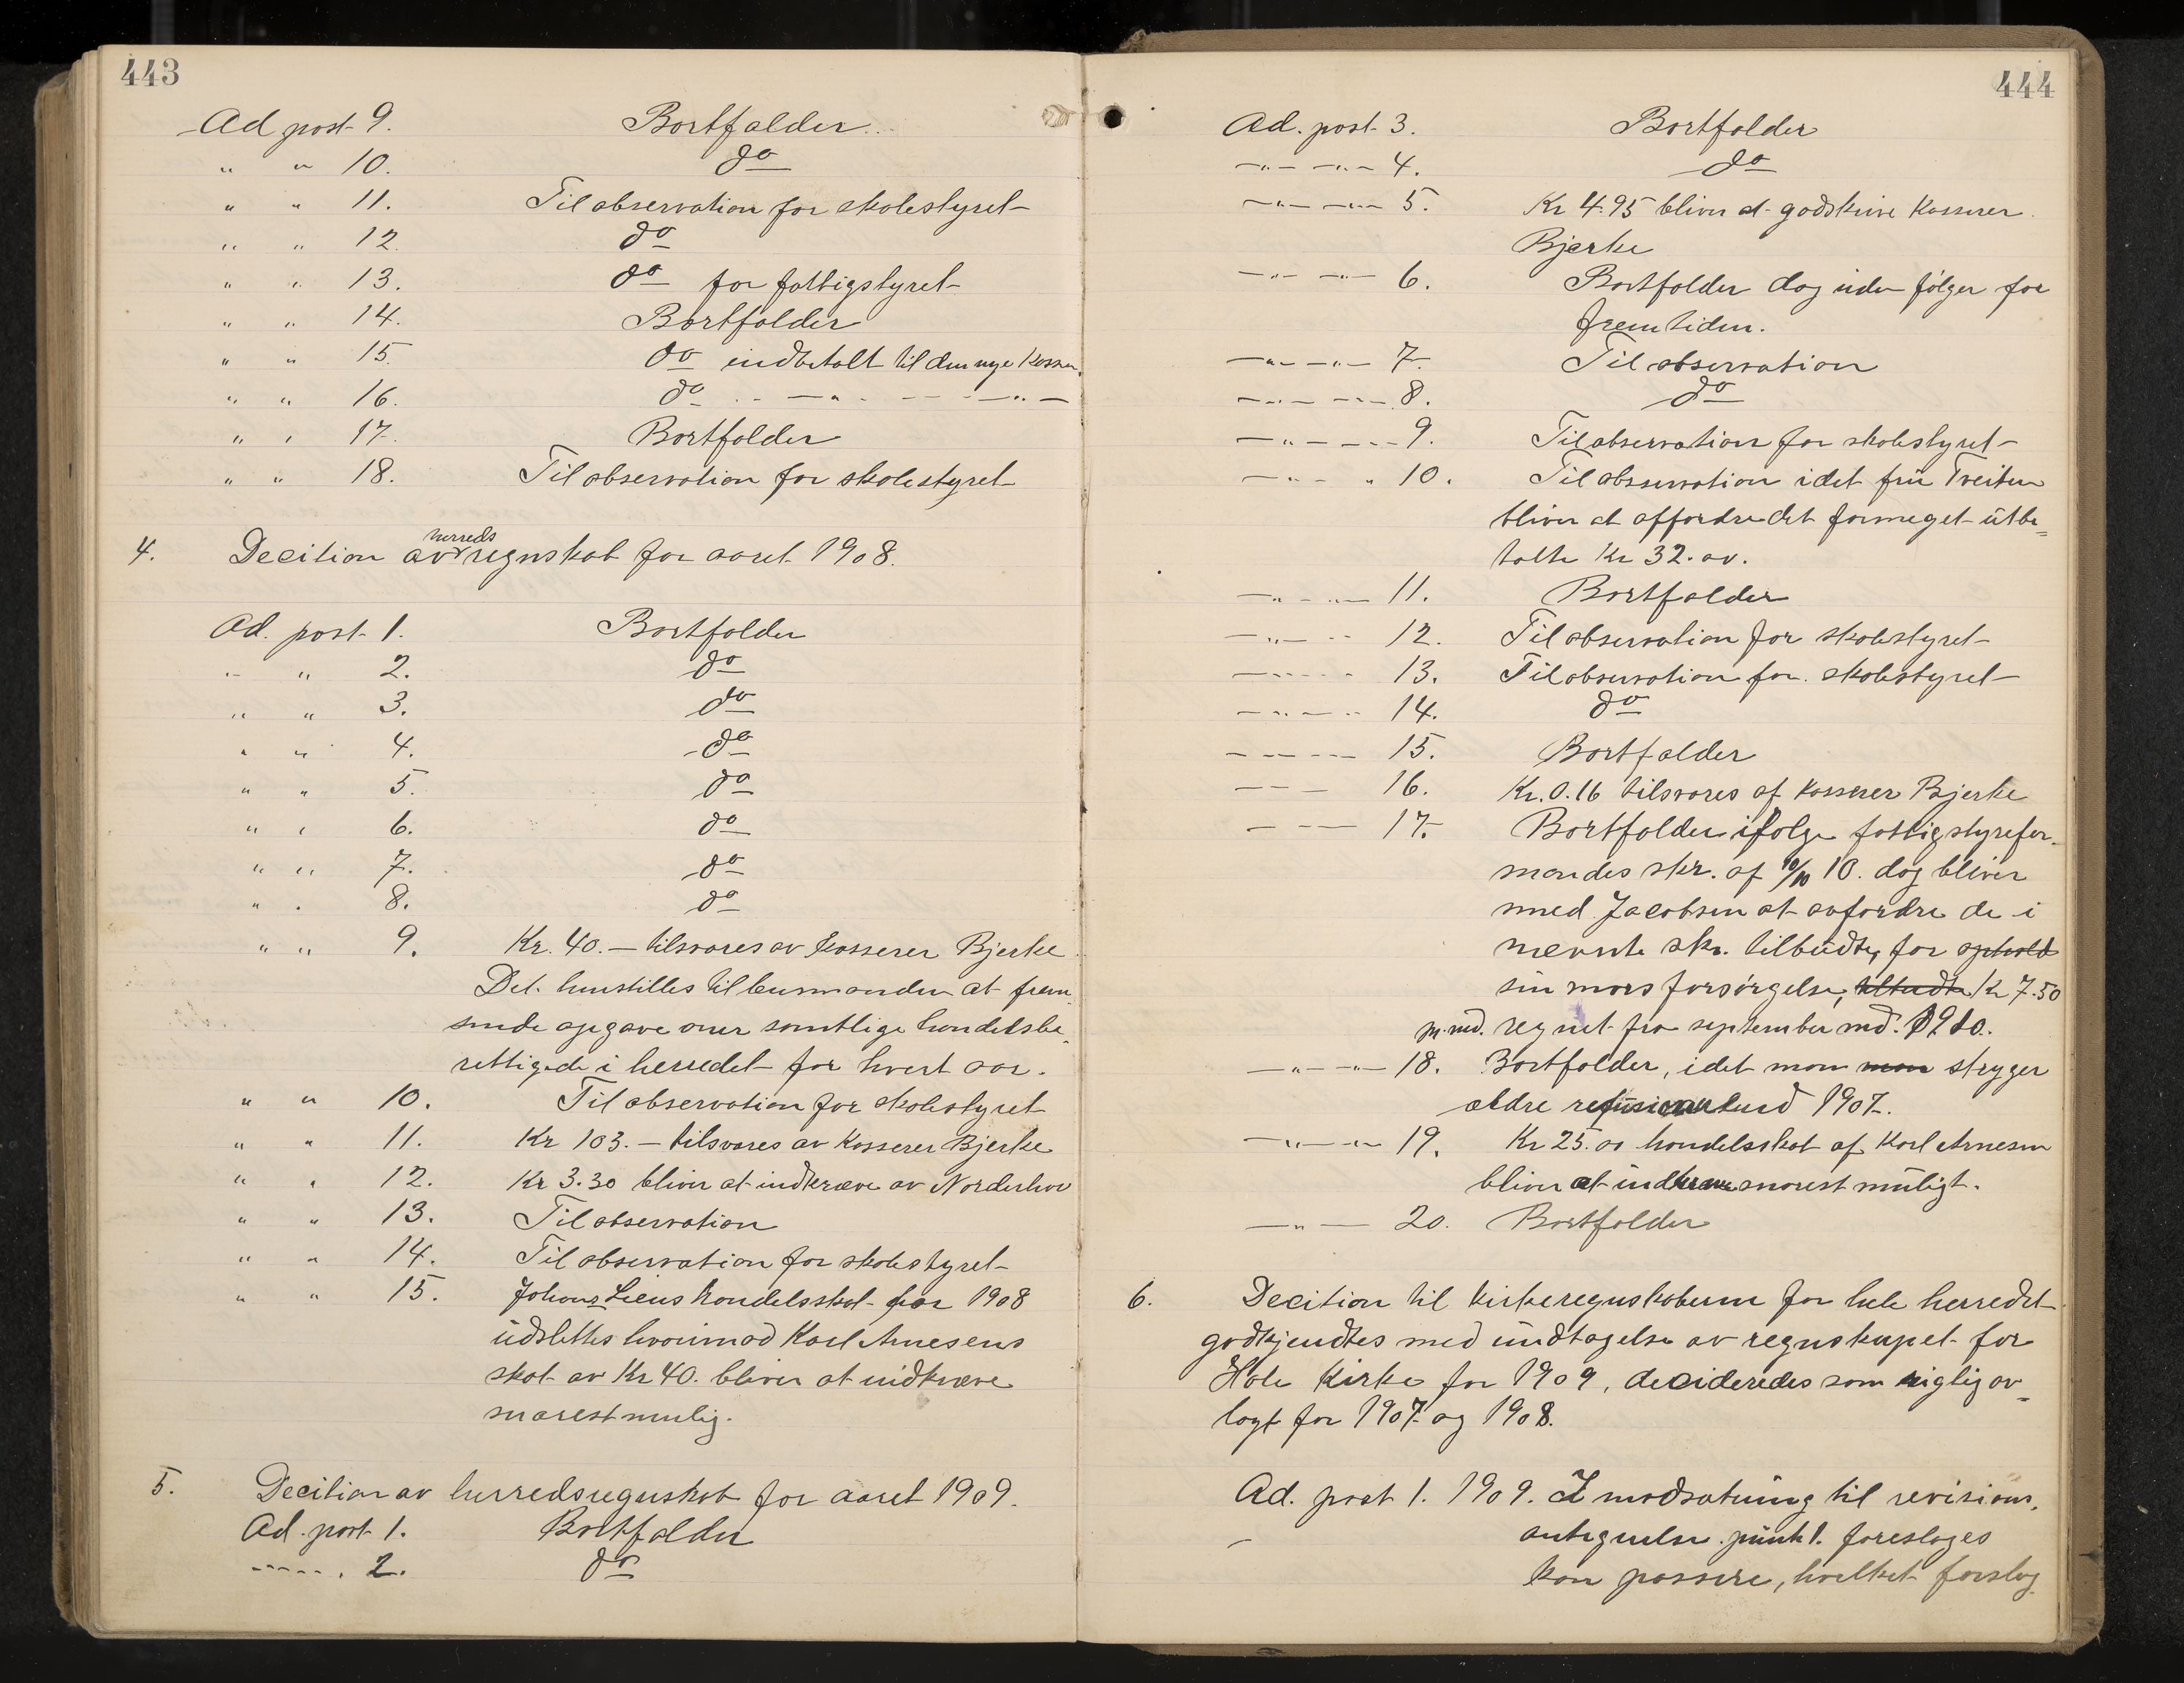 443
Ad post 9. Bortfalder.
" " 10. do
" " 11. Til observation for skolestyret
" " 12. do
" " 13. do for fattigstyret
" " 14. Bortfalder
" " 15. do indbetalt til den nye kasser.
" " 16. do - - - " - - - - " -
" " 17. Bortfalder
" " 18. Til observation for skolestyret
herreds
4. Decition av regnskab for aaret 1908.
Ad. post 1. Bortfalder
" " 2. do
" " 3. do
" " 4. do
" " 5. do
" " 6. do
" " 7. do
" " 8. do
" " 9. Kr. 40.- tilsvares av kasserer Bjerke.
Det henstilles til lensmanden at frem-
sende opgave over samtlige handelsbe-
rettigede i herredet for hvert aar.
" " 10. Til observation for skolestyret
" " 11. Kr 103.- tilsvares av kasserer Bjerke
" " 12. Kr 3.30 bliver at indkræve av Norderhov
" " 13. Til observation
" " 14. Til observation for skolestyret
" " 15. Johans Liens handelsskat for 1908
udslettes hvorimod Karl Arnesens
skat av Kr 40. bliver at indkræve
snarest mulig.
5. Decition av herredsregnskab for aaret 1909.
Ad. post 1. Bortfalder
- - - - . 2. do
444
Ad. post 3. Bortfalder
- " - - " - 4. do
- " - - " - 5. Kr 4.95 bliver at godskrive kasserer
Bjerke
- " - - " - 6. Bortfalder dog uden følger for
fremtiden.
- " - - " - 7. Til observation
- " - - " - 8. do
- " - - - - 9. Til observation for skolestyret
- " - " 10. Til observation idet fru Tveiten
bliver at affordre det formeget utbe=
talte Kr 32. av.
- " - " - 11. Bortfalder
- " - - - 12. Til observation for skolestyret
- - - - - 13. Til observation for skolestyret
- - " - - - 14. do
- - - - - 15. Bortfalder
- - - 16. Kr. 0.16 tilsvares af kasserer Bjerke
- - - 17. Bortfalder ifølge fattigstyrefor-
mandes skr. af 10/10 10. dog bliver
smed Jacobsen at avfordre de i
nævnte skr. tilbudte, for ophold
sin mors forsørgelse, tilbudte Kr 7.50
pr. md. regnet fra september md. 1910.
- " - " - 18. Bortfalder, idet man man stryger
ældre refusioner 1907.
- " - " - 19. Kr 25.00 handelsskat af Karl Arnesen
bliver at indkræve snarest muligt.
- " - 20. Bortfalder
6. Decition til kirkeregnskaberne for hele herredet
godkjendtes med undtagelse av regnskapet for
Hole Kirke for 1909, decideredes som rigtig av-
lagt for 1907 og 1908.
Ad. post 1. 1909. I modsætning til revisions-
antegnelse punkt 1. foreslages
kan passere, hvilket forslag